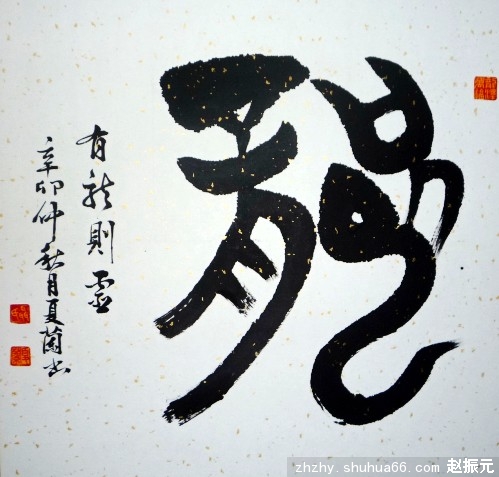 龍
有龙則霊
辛卯仲秋月夏蘭书
zhzhy.shuhua66.com 赵振元